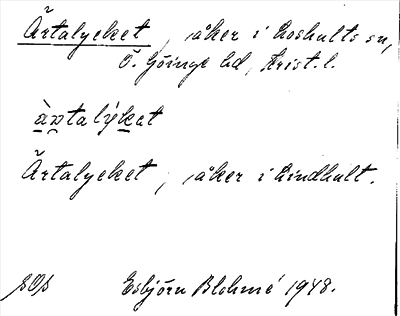 Ärtalyeket, åker i Loshults sn,
Ö. Göinge hd, Krist. l.
àṇtalýket
Ärtalyeket, åker i Lindhult.
Esbjörn Blohmé 1948.